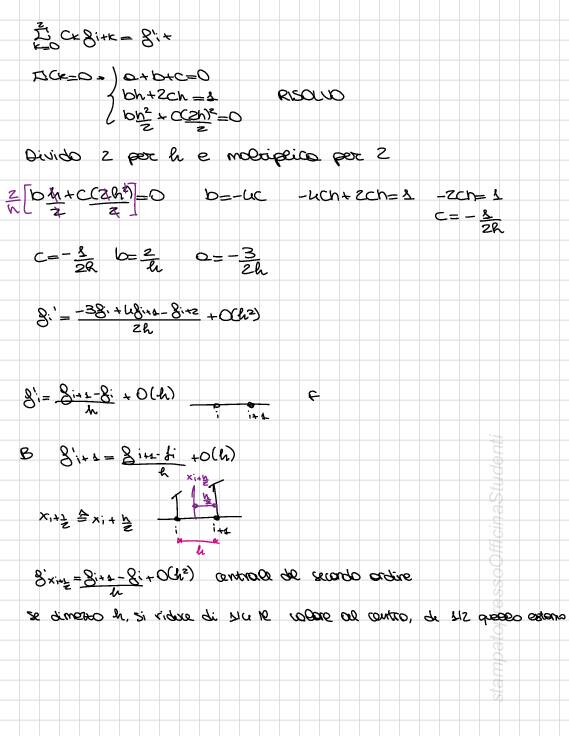 2
Σ Ck fi+k = f'i +
k=0
ΠCk=0 → { a+b+c=0
bh+2ch=1 RISOLVO
bh²/2 + c(2h)²/2 =0
Divido 2 per h e moltiplico per 2
2/h [b h/2 + c(2h²)/2] =0 b=-4c -4ch+2ch=1 -2ch=1
c=-1/2h
c=-1/2h b=2/h a=-3/2h
fi' = -3fi+4fi+1-fi+2/2h + O(h²)
f'i = fi+1-fi/h + O(h) i i+1 F
B f'i+1 = fi+1-fi/h + O(h)
xi+½ h/2
xi+½ ≜ xi + h/2 i i+1
h
f'xi+½ = fi+1-fi/h + O(h²) centrale del secondo ordine
se dimezzo h, si riduce di 1/4 l'E valore al centro, di 1/2 quello esterno
stampatopressoOfficinaStudenti